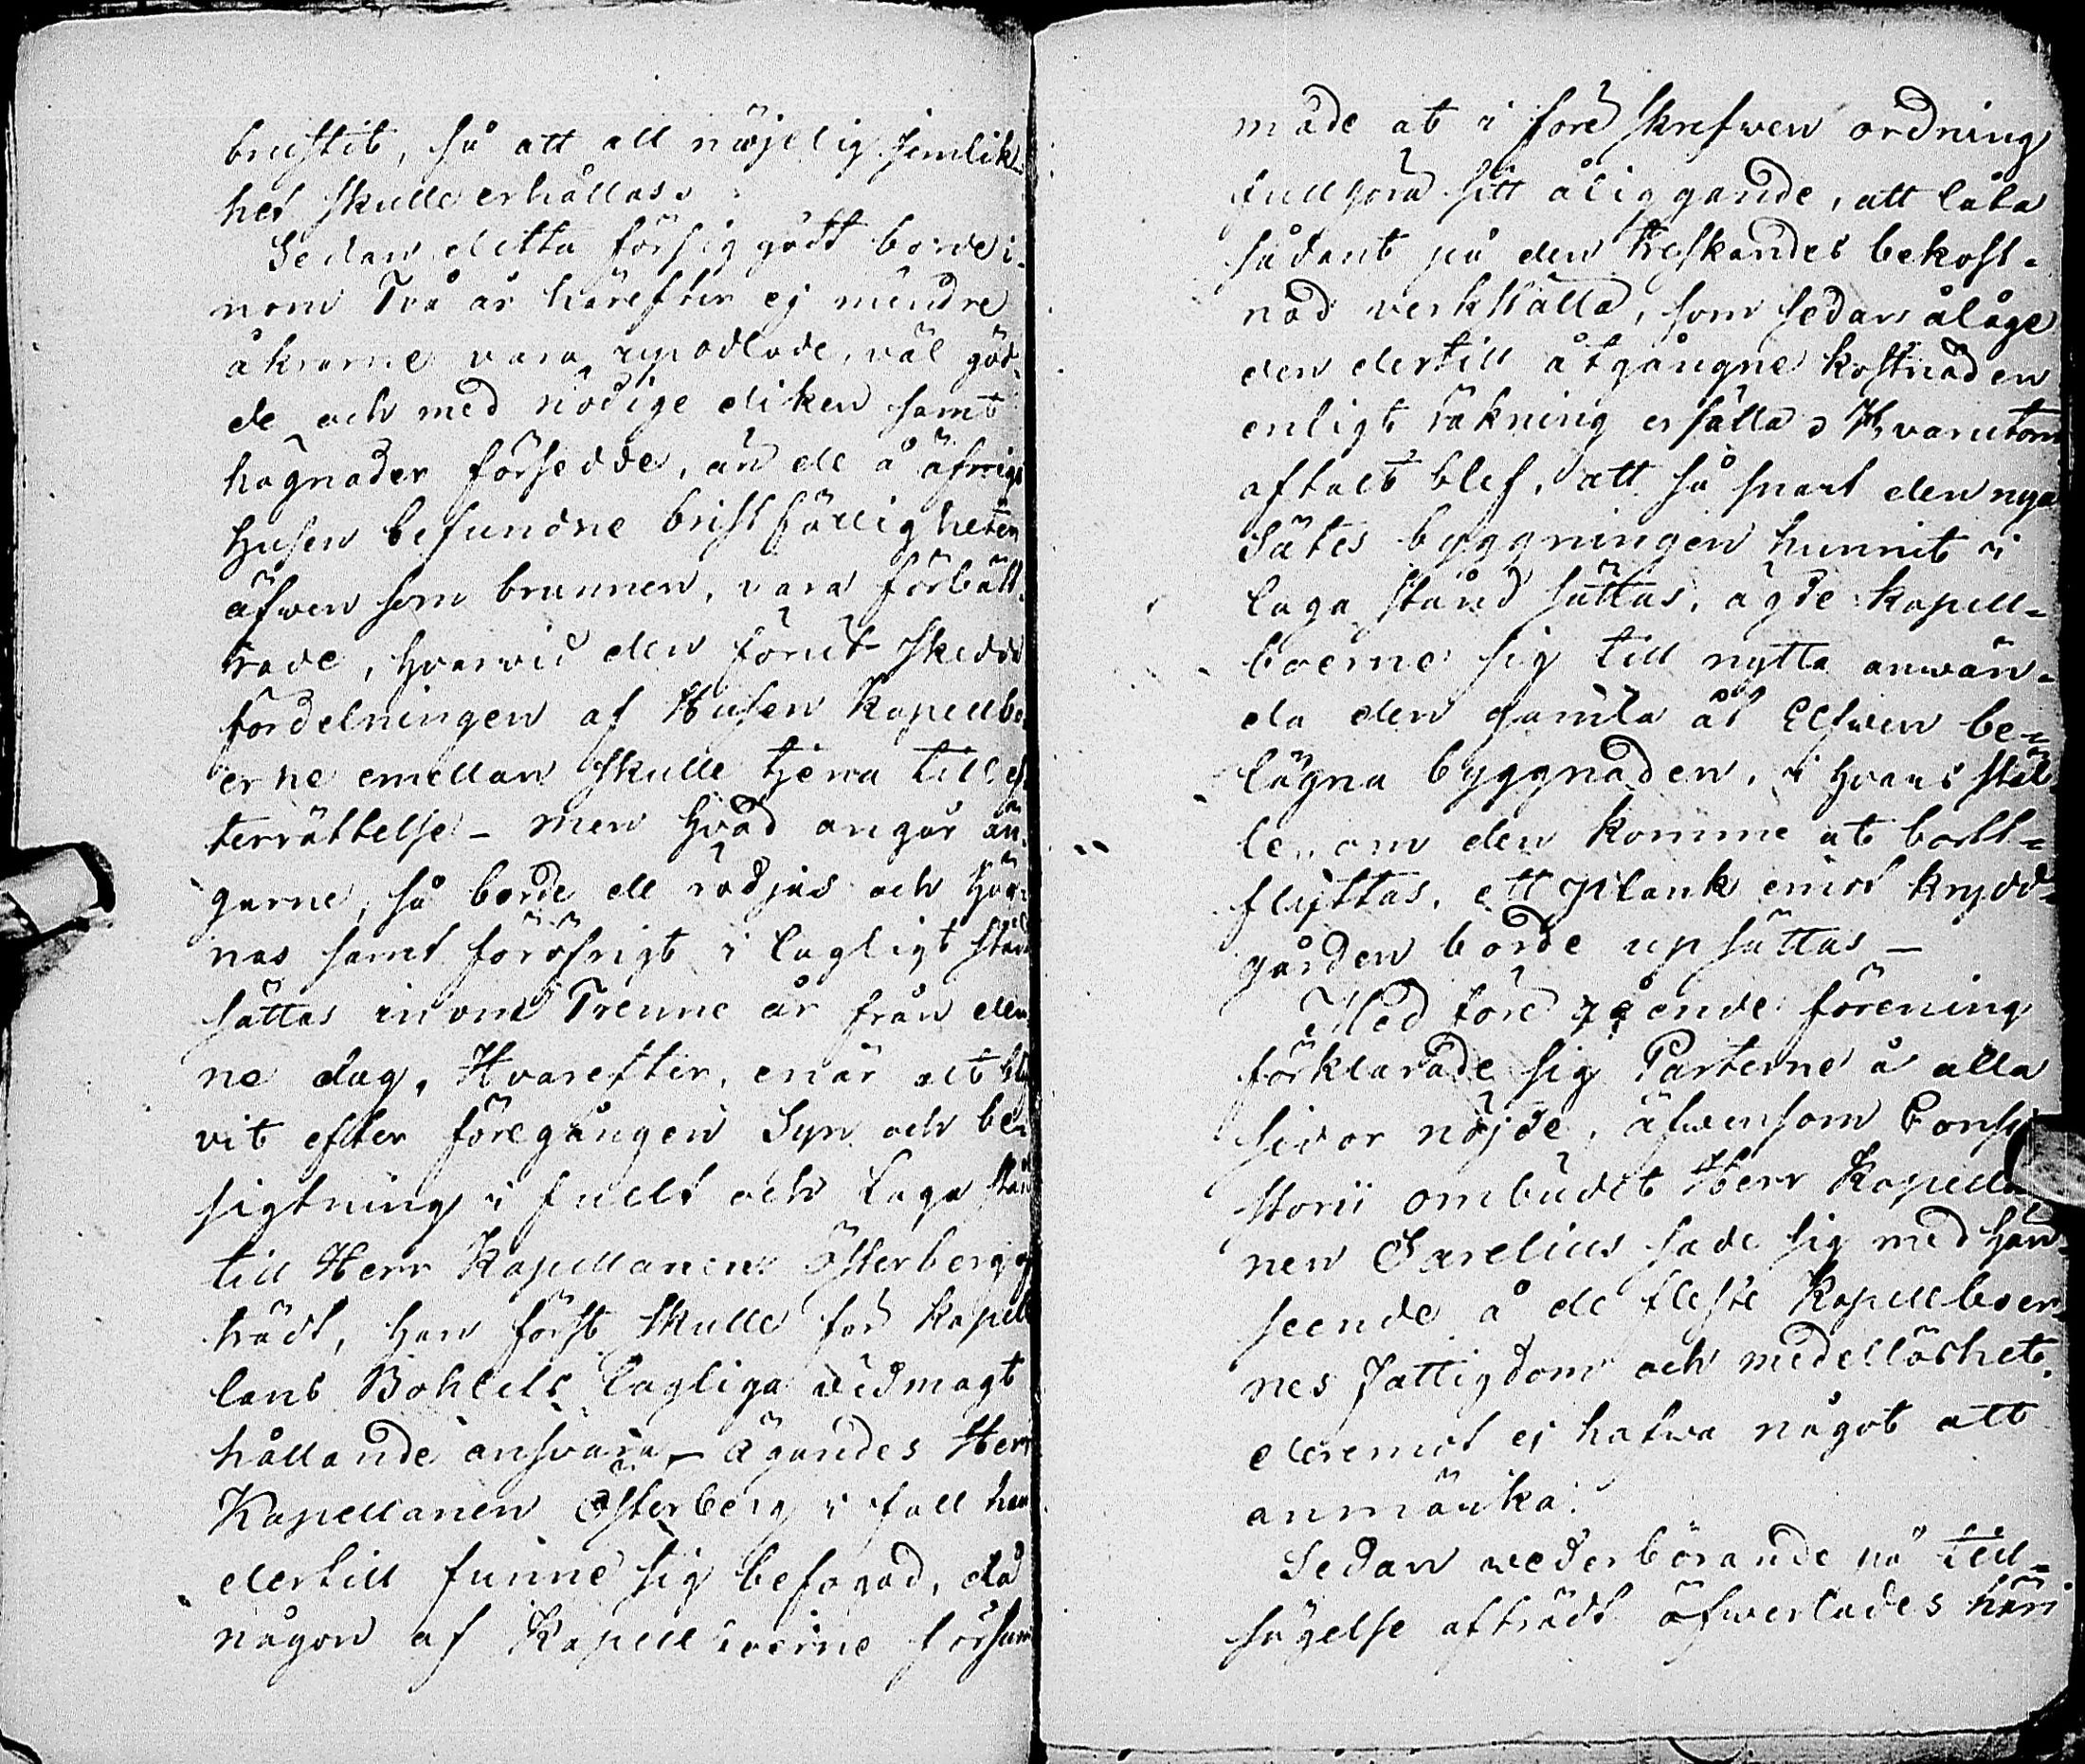 brustit, så att all nöjelig jemlik-
het skulle erhållas.
Sedan detta försiggått borde i-
nom Två år härefter ej mindre
åkrarne vara upodlade, väl göd-
de och med nödige diken samt
hägnader försedde, än de å öfrige
Husen befundne bristfälligheter
äfwen som brunnen, vara förbätt-
rade, hvarvid den förut skedde
fördelningen af Husen Kapellbo-
erne emellan skulle tjena till ef-
terrättelse - men hvad angår än-
garne, så borde de rödjas och
nas samt föröfrigt i lagligt stånd
sättas innom Trenne år från den-
ne dag, Hvarefter, enär alt bli-
vit efter föregången Syn och be-
sigtning i fullt och Laga stånd
till Herr Kapellanen Österberg
trädt, han först skulle för Kapel-
lans Bohlets lagliga vidmagt
hållande ansvara, - ägandes Herr
Kapellanen Österberg i fall han
dertill funne sig befogad, då
någon af Kapellboerne försum
made at i föreskrefwen ordning
fullgöra sitt åliggande, att låta
sådant på den treskandes bekost-
nad verkställa, som sedan ålåge
den dertill åtgångne kostnaden
enligt räkning ersätta. Hvarutom
aftalt blef, att så snart den nya
Sätes byggningen hunnit i
laga stånd sättas, ägde Kapell-
boerne sig till nytta anwän-
da den gamla åt Elfwen be-
lägna byggnaden, i hvars stäl-
le, om den komme at bort-
flyttas, ett Plank emot krydd-
gården borde upsättas -
Med föregående förening
förklarade sig Parterne å alla
sidor nöjde, äfwensom Consi-
storii ombudet Herr Kapella
nen Sarelius sade sig med hän-
seende å de fleste Kapellboer-
nes fattigdom och medellöshet
deremot ej hafwa något att
anmärka.
Sedan wederbörande på till-
sägelse afträdt öfwerlades häri